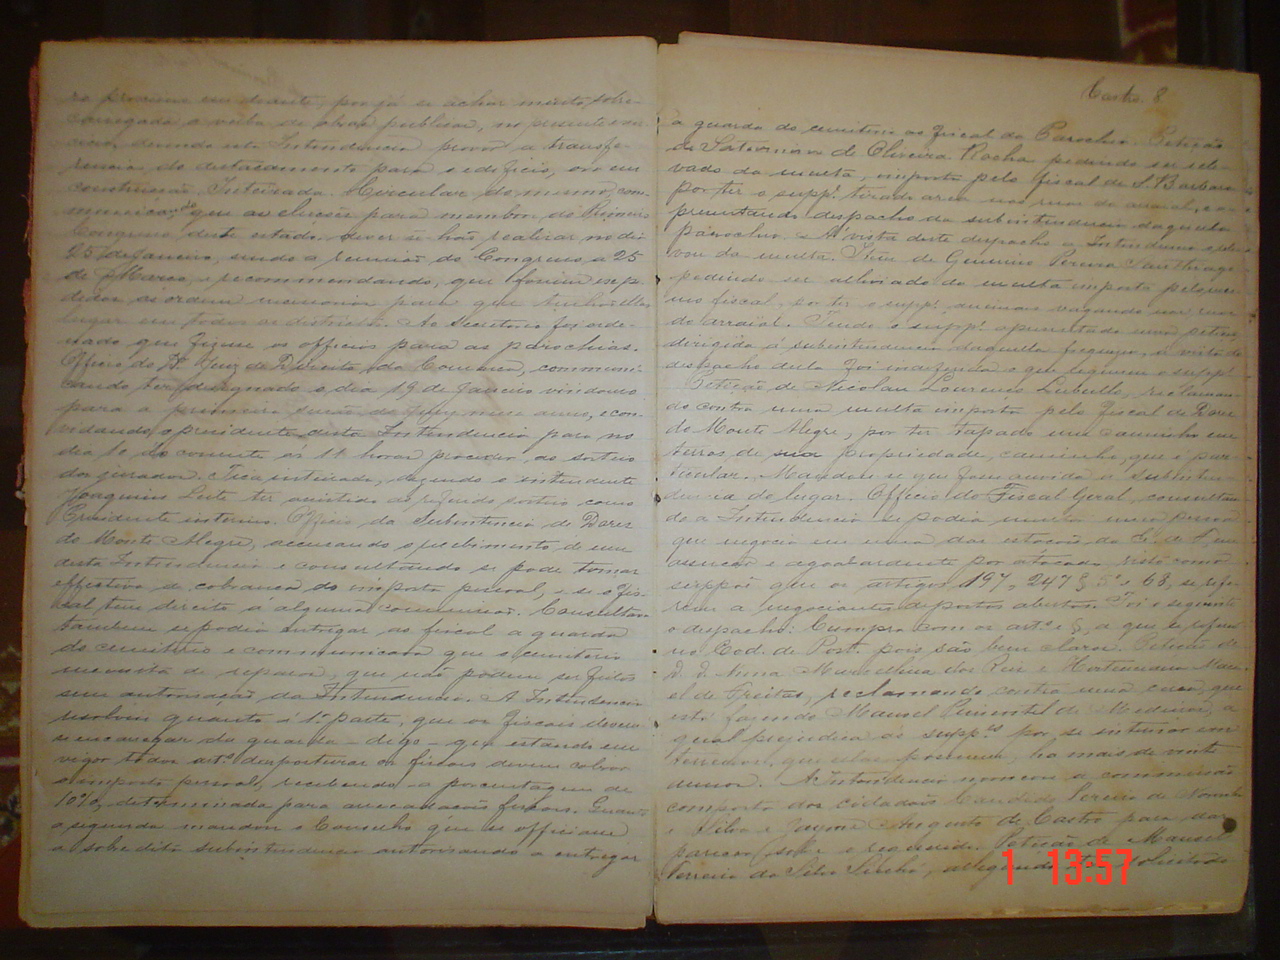 ro proximo em diante, por já se achar muito sobre-
carregada a verba de obras publicas, no presente exer-
cicio, devendo esta Intendencia provar a transfe-
rencia do destacamento para o edificio, ora em
construcção. Inteirada. Circular do mesmo, com-
municando que as eleições para membros do Primeiro
Congresso deste estado, dever-se-hão realizar no dia
25 de Janeiro, sendo a reunião do Congresso a 25
de Março, e recommendando, que fossem expe-
didas as ordens necessarias para que tenhão ellas
lugar em todos os districtos. Ao Secretario foi orde-
nado que fizesse os officios para as parochias.
Officio do Dr. Juiz de Direito da Comarca, communi-
cando ter designado o dia 19 de Janeiro vindouro
para a primeira sessão do jury nesse anno, e con-
vidando o presidente desta Intendencia para no
dia 10 do corrente ás 11 horas proceder ao sorteio
dos jurados. Fica inteirada, dizendo o intendente
Joaquim Leite ter assistido ao referido sorteio como
Presidente interino. Officio da Subintencia de Dores
do Monte Alegre, accusando o recebimento de um
desta Intendencia e consultando se pode tornar
effectiva a cobrança do imposto pessoal, e se o fis-
cal tem direito a alguma commissão. Consultou
tambem se podia entregar ao fiscal a guarda
do cemiterio e communicava que o cemiterio
necessita de reparos, que não podem ser feitos
sem autorisação da Intendencia. A Intendencia
resolveu quanto á 1ª parte, que os fiscaes devem
se encarregar da guarda - digo - que estando em
vigor todos artos das posturas os fiscaes devem cobrar
o imposto pessoal, recebendo a porcentagem de
10%, determinada para arrecadações fiscaes. Quanto
a segunda mandou o Conselho que se officiasse
a sobredita subintendencia autorisando a entregar
Castro. 8
a guarda do cemiterio ao fiscal da Parochia. Petição
de Saturnino de Oliveira Rocha pedindo ser rele-
vado da multa, imposta pelo fiscal de S. Barbara
por ter o suppe tirado area nas ruas do arraial, a-
presentando despacho da subintendencia daquella
parochia. A' vista deste despacho a Intendencia rele-
vou da multa. Idem de Geminio Pereira Santhiago
pedindo ser alliviado da multa imposta pelo mes-
mo fiscal, por ter o suppe animaes vagando nas ruas
do arraial. Tendo o suppe apresentado uma petição
dirigida á subintendencia daquella freguezia, á vista do
despacho della foi indeferida o que requereu o suppe
Petição de Nicolau Lourenço Lubello, reclaman-
do contra uma multa imposta pelo fiscal de Dores
do Monte Alegre, por ter tapado um caminho em
terras de sua propriedade, caminho, que é par-
ticular. Mandou-se que fosse ouvida a subinten-
dencia do lugar. Officio do Fiscal Geral, consultan-
do a Intendencia se podia multar uma pessoa
que negocia em uma das estações da E. de F. em
assucar e agoardente por atacado visto como
suppõe que os artigos 197, 247 § 5º e 68, se refe-
rem a negociantes de portas abertas. Foi o seguinte
o despacho: Cumpra com os artos e §, a que se refere
no Cod. de Post. pois são bem claros. Petição de
D. D. Anna Marcellina dos Reis e Hortencia Mano-
el de Freitas, reclamando contra uma cerca, que
está fazendo Manoel Pimentel de Medeiros, a
qual prejudica as suppes por se internar em
terrenos, que ellas possuem, ha mais de vinte
annos. A Intendencia nomeou a commissão
composta dos cidadãos Candido Pereira de Noronha
e Silva e Jayme Augusto de Castro para dar
parecer sobre o requerido. Petição de Manoel
Ferreira da Silva Sinhô, allegando ter solicitado
1 13:57